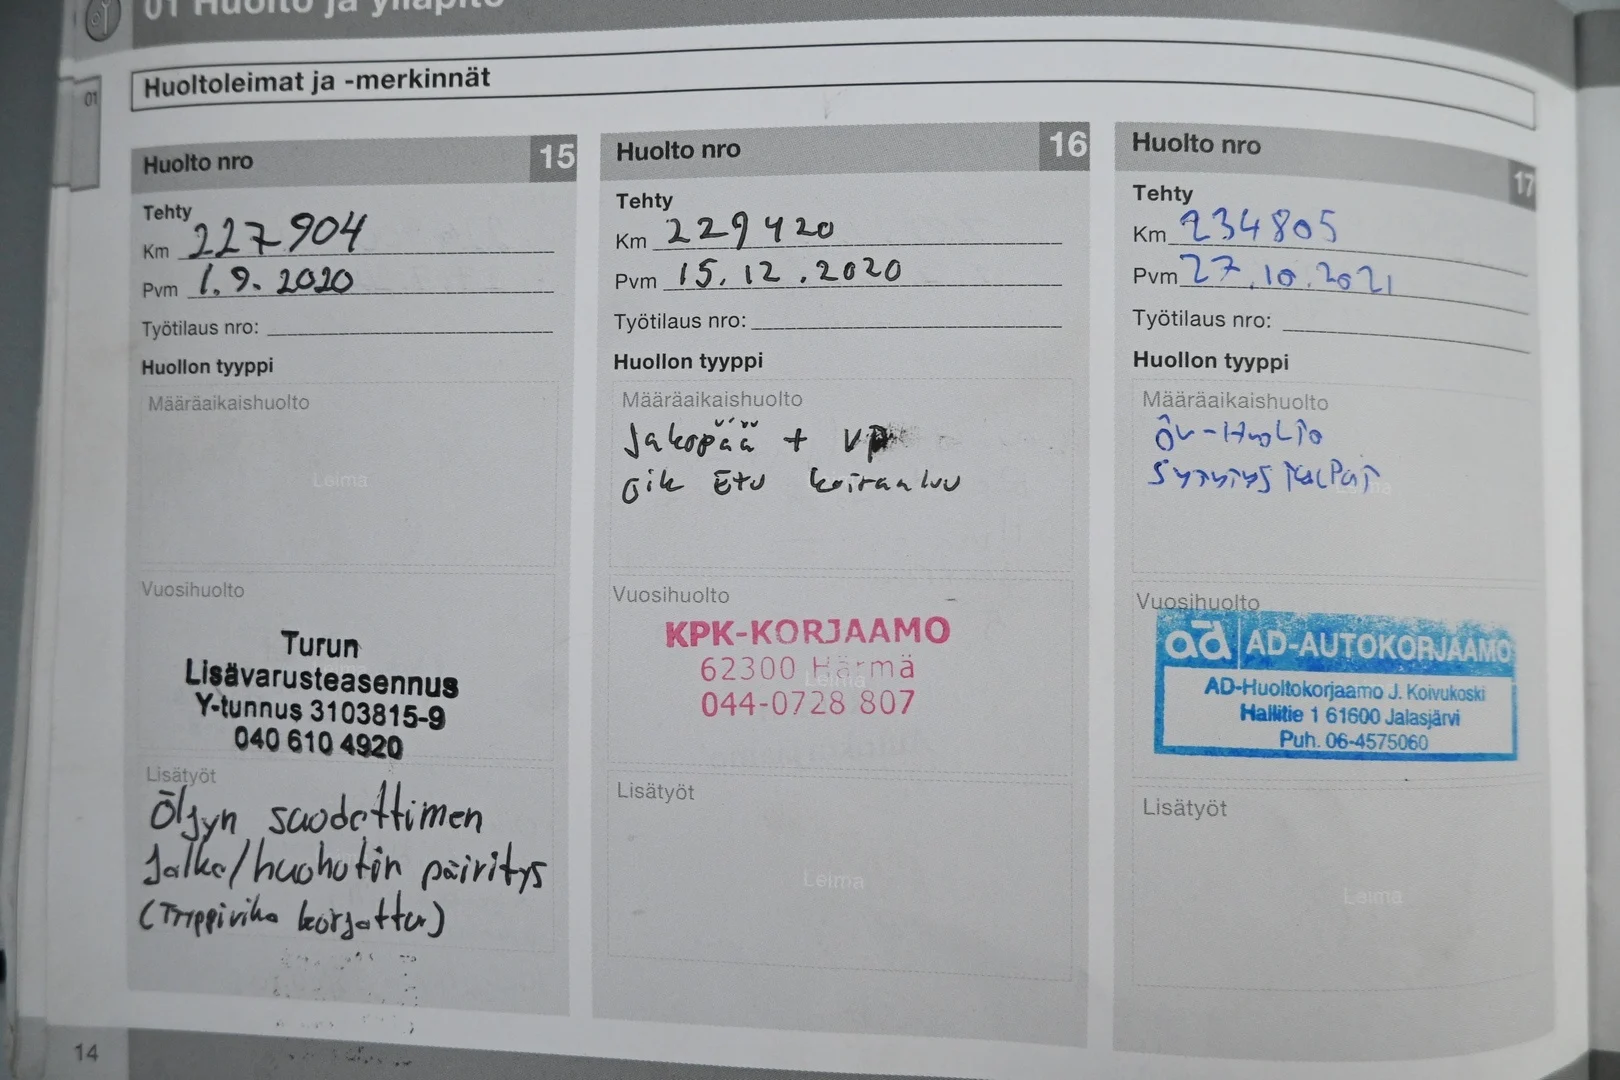 01 Huolto ja ylläpito
01
Huoltoleimat ja -merkinnät
Huolto nro 15
Tehty
Km 227 904
Pvm 1.9.2020
Työtilaus nro:
Huollon tyyppi
Määräaikaishuolto
Leima
Vuosihuolto
Turun
Lisävarusteasennus
Y-tunnus 3103815-9
040 610 4920
Lisätyöt
Öljyn suodattimen
Jalka/huohotin päivitys
(Trippivika korjattu)
Huolto nro 16
Tehty
Km 229 420
Pvm 15.12.2020
Työtilaus nro:
Huollon tyyppi
Määräaikaishuolto
Jakopää + VP
Oik Etu koiranluu
Vuosihuolto
KPK-KORJAAMO
62300 Härmä
Leima
044-0728 807
Lisätyöt
Leima
Huolto nro 17
Tehty
Km 234805
Pvm 27.10.2021
Työtilaus nro:
Huollon tyyppi
Määräaikaishuolto
Öv-Huolto
Sytytys Tulpat
Vuosihuolto
ad AD-AUTOKORJAAMO
AD-Huoltokorjaamo J. Koivukoski
Hallitie 1 61600 Jalasjärvi
Puh. 06-4575060
Lisätyöt
Leima
14